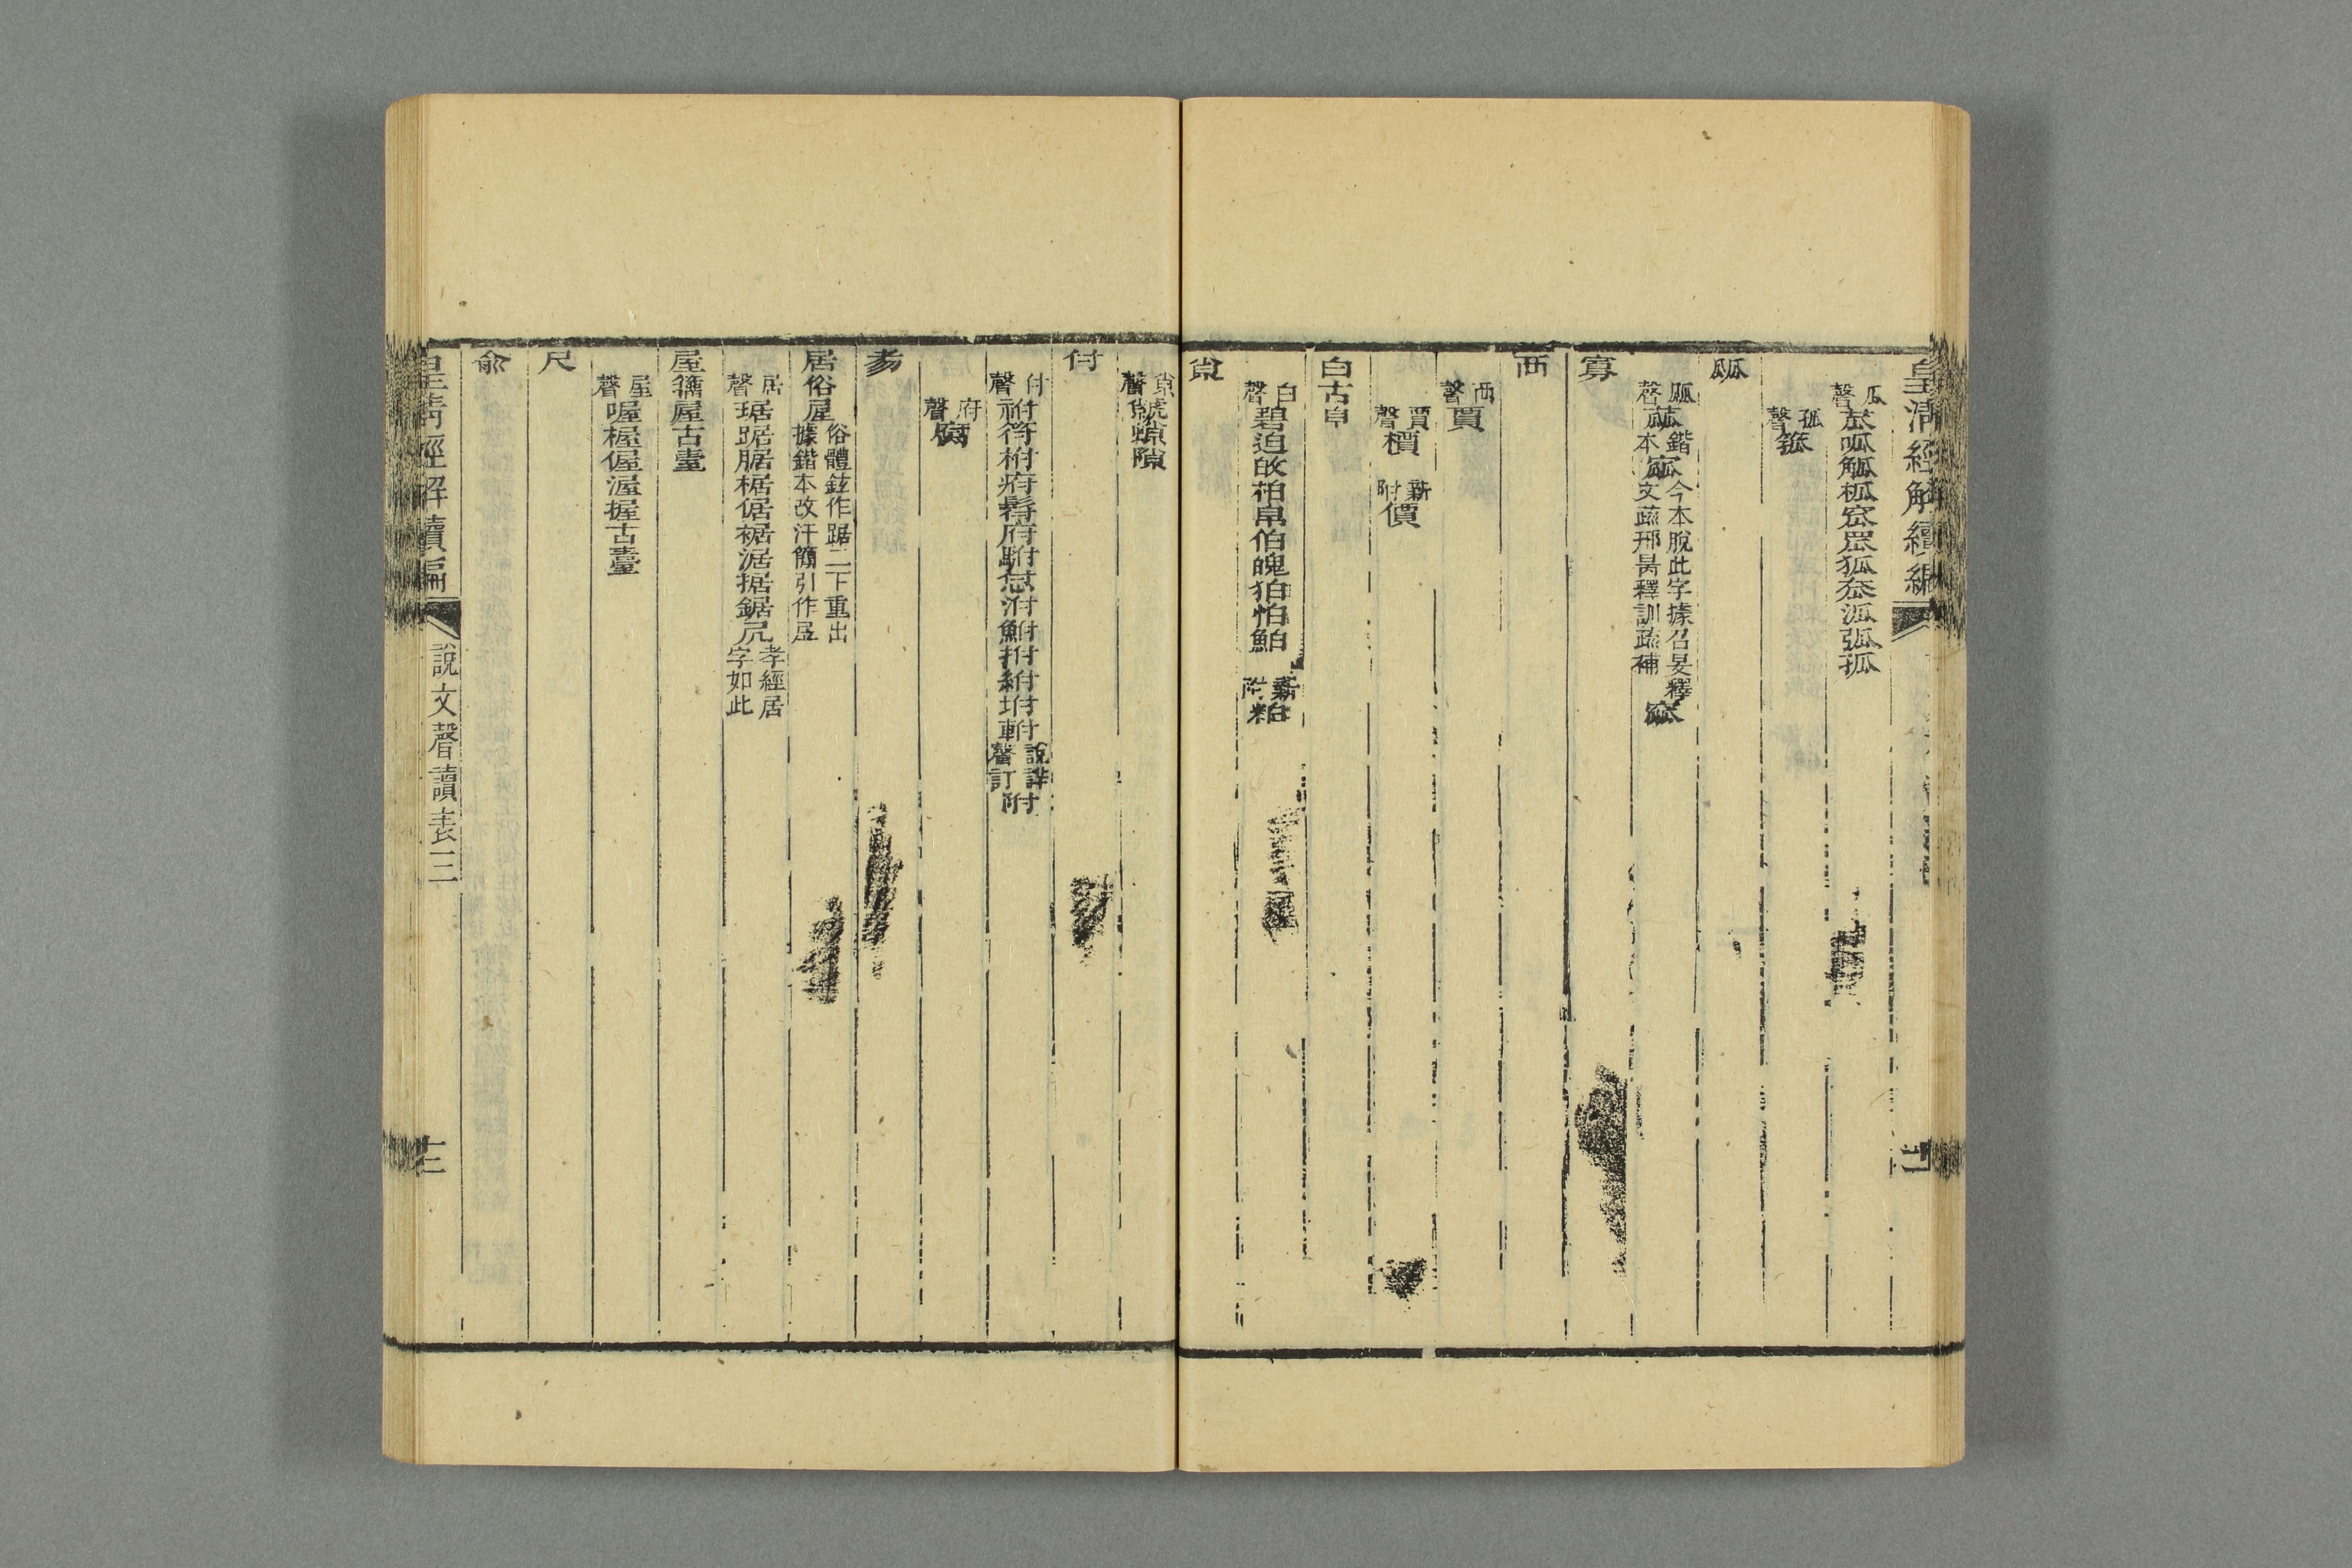 皇清經解續編
瓜聲苽呱觚柧窊罛狐𡗢泒弧孤
孤聲箛
㼌
㼌聲蓏鍇本窳今本脫此字據召旻釋文疏邢昺釋訓疏補
寡
襾
襾聲賈
賈聲檟 新附價
白古
白聲碧迫敀柏帛伯魄狛怕鮊 新附粕
𡭴
𡭴聲虩䗪隙
付
付聲祔符柎疛髍府駙怤泭鮒拊紨坿軵說詳聲訂附
府聲腐
豦
居俗屋俗體鉉作踞二下重出據鍇本改汗簡引作𡱒
居聲琚踞腒椐倨裾涺据鋸凥孝經居字如此
屋籀屋古臺
屋聲喔楃偓渥握古臺
尺
俞
皇清經解續編
說文聲讀表三
十二